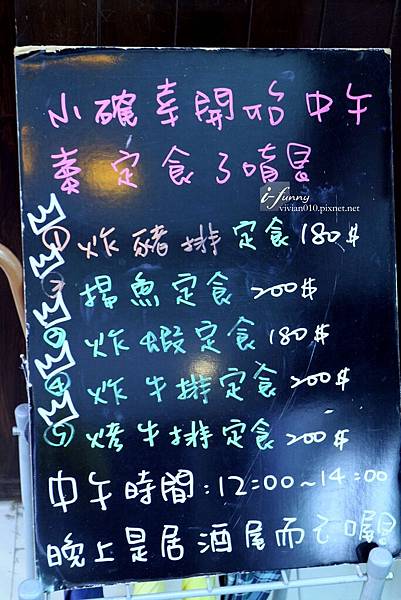 小確幸開始中午
賣定食了噴昷
i-funny
vivian010.pixnet.net
① 炸豬排定食 180$
② 揚魚定食 200$
③ 炸蝦定食 180$
④ 炸牛排定食 200$
⑤ 烤牛排定食 200$
中午時間:12:00~14:00
晚上是居酒屋而已喔